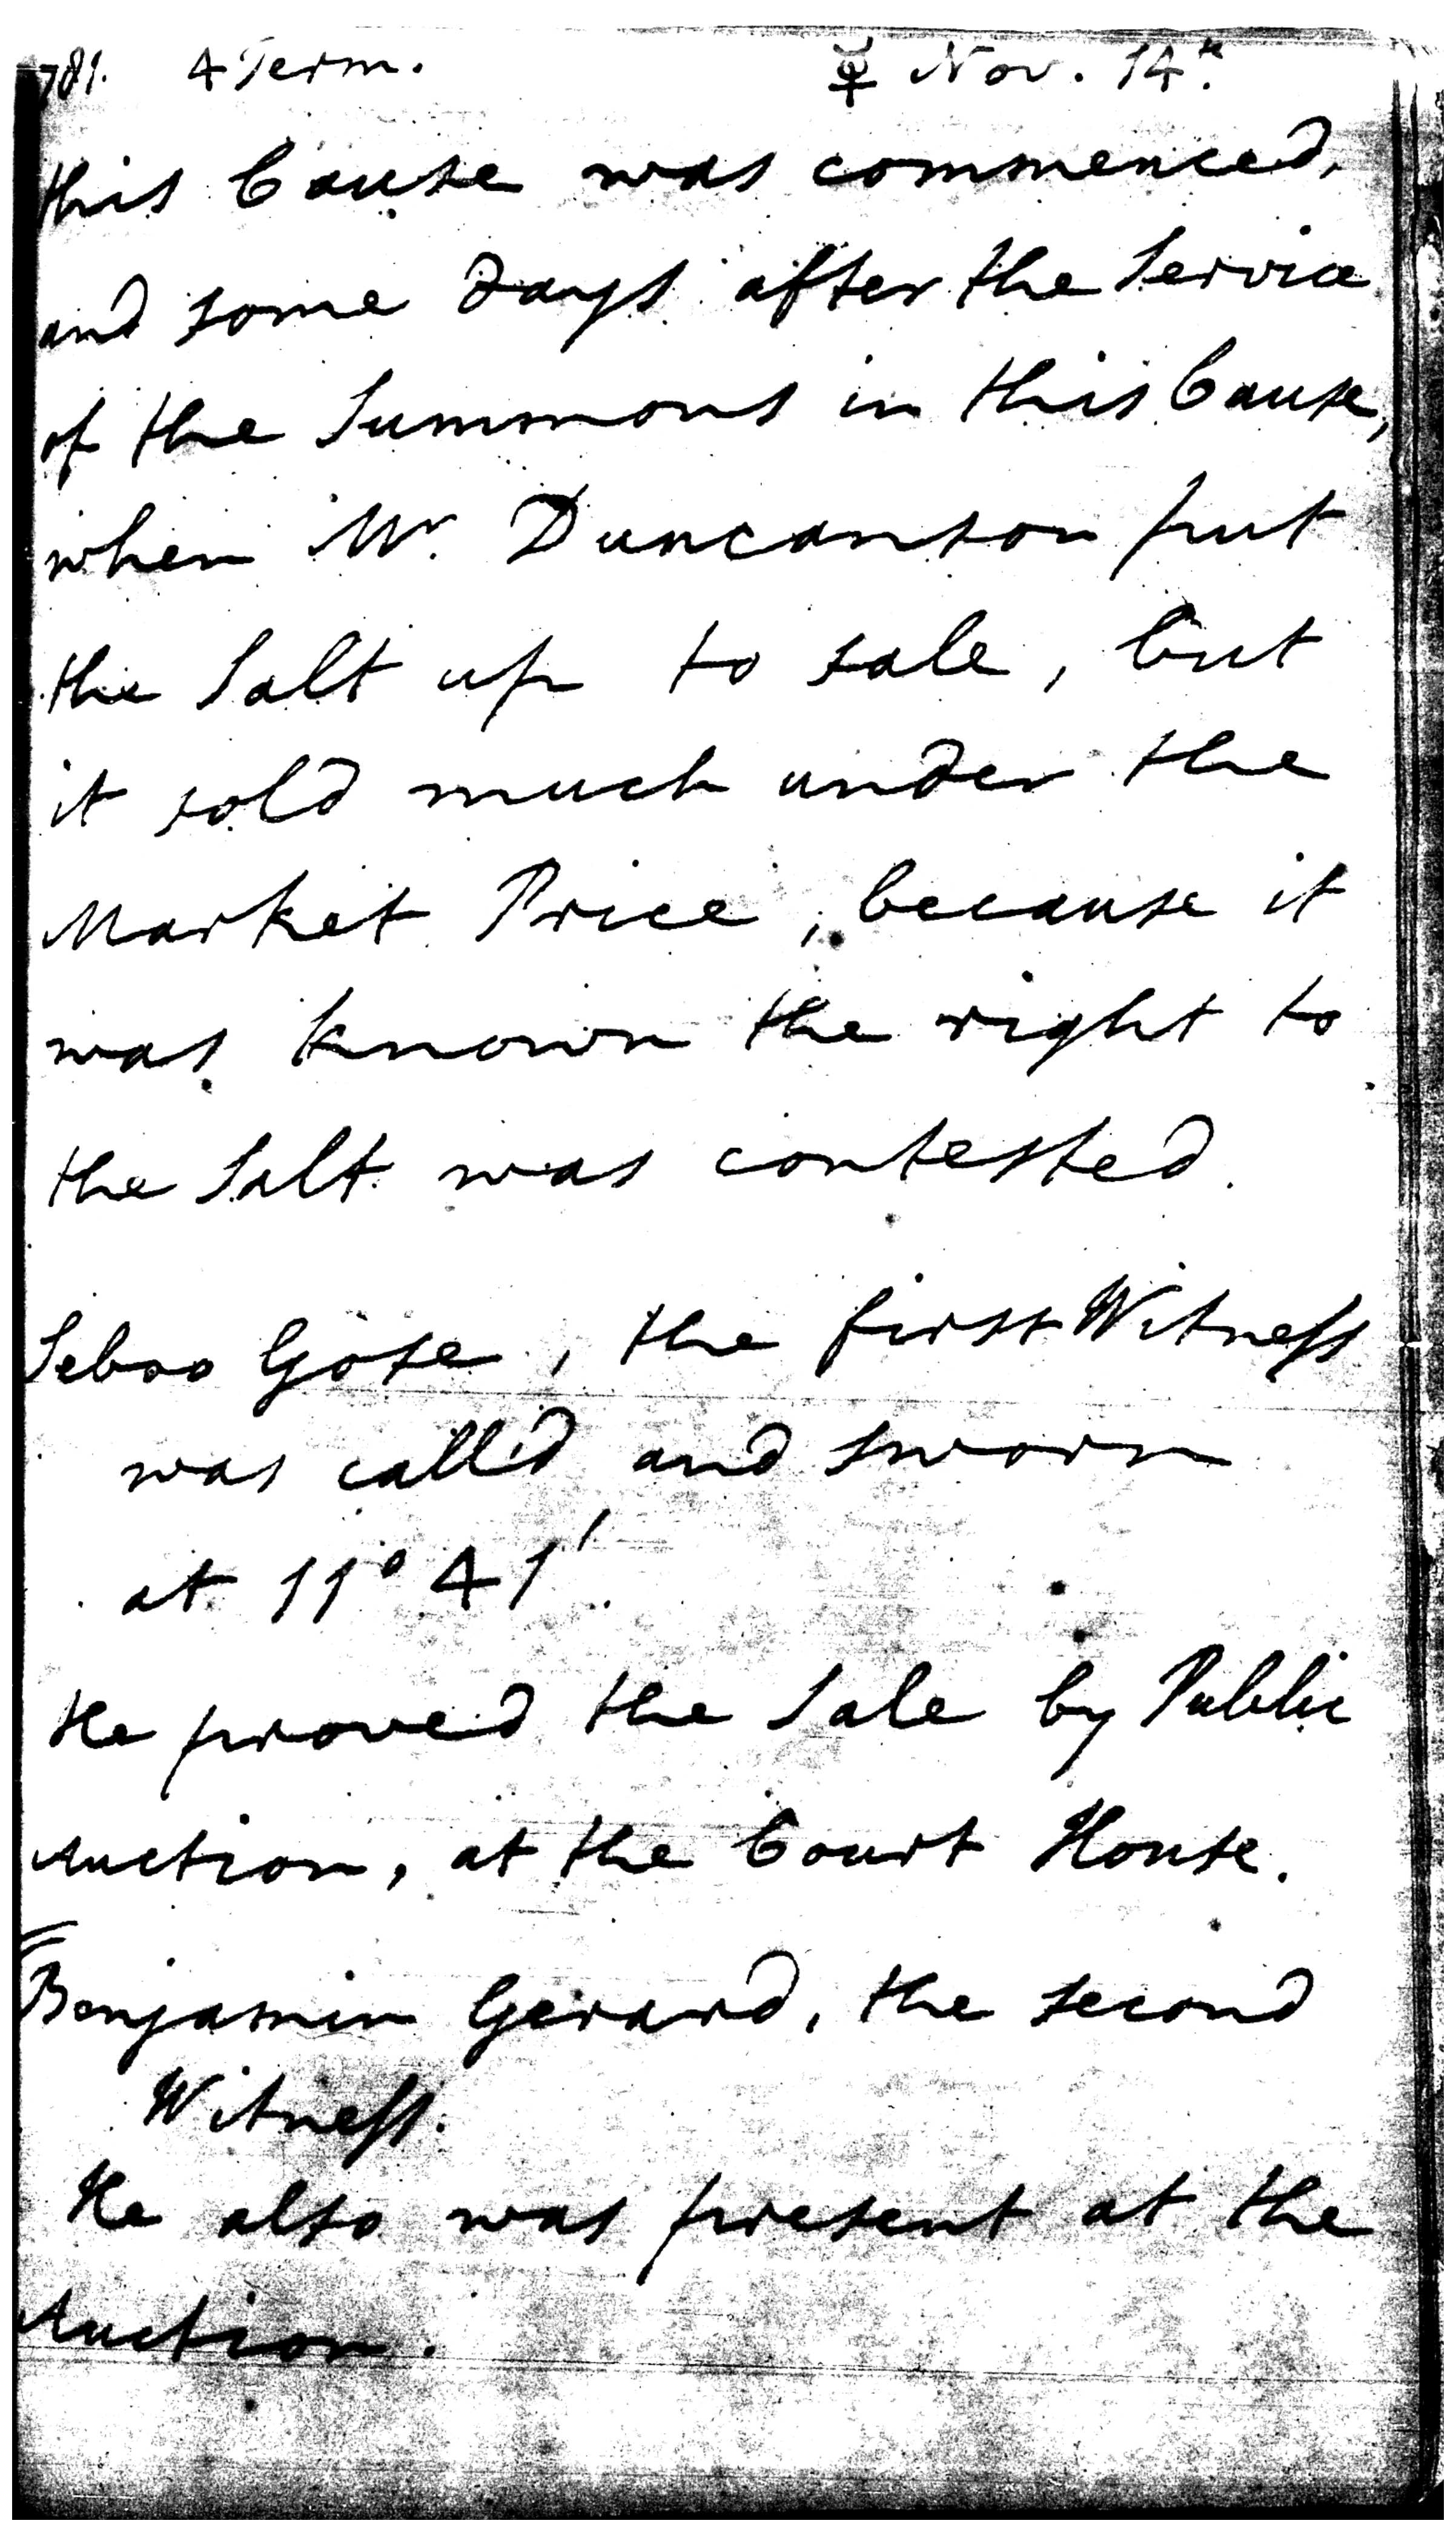 781. 4 Term. ☿ Nov. 14th.
this Cause was commenced,
and some days after the Service
of the Summons in this Cause,
when Mr. Duncanson put
the Salt up to sale, but
it sold much under the
Market Price, because it
was known the right to
the Salt was contested.
Seboo Gose, the first Witness
was call'd and sworn
at 11° 41'.
He proved the Sale by Public
Auction, at the Court House.
Benjamin Gerard, the second
Witness.
He also was present at the
Auction.